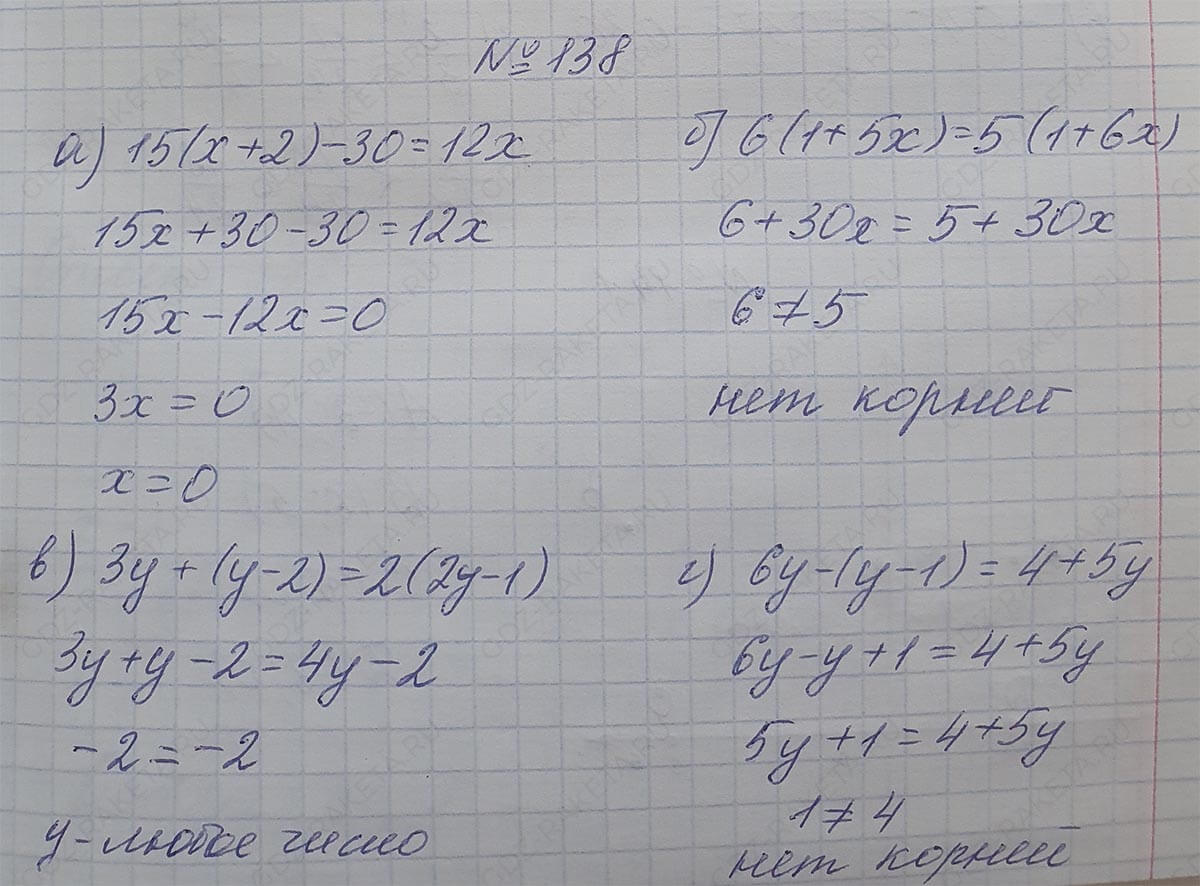 №138
а) 15(x+2)-30=12x
15x+30-30=12x
15x-12x=0
3x=0
x=0
б) 6(1+5x)=5(1+6x)
6+30x=5+30x
6≠5
нет корней
в) 3y+(y-2)=2(2y-1)
3y+y-2=4y-2
-2=-2
y-любое число
г) 6y-(y-1)=4+5y
6y-y+1=4+5y
5y+1=4+5y
1≠4
нет корней
GDZ-RAKETA.RU